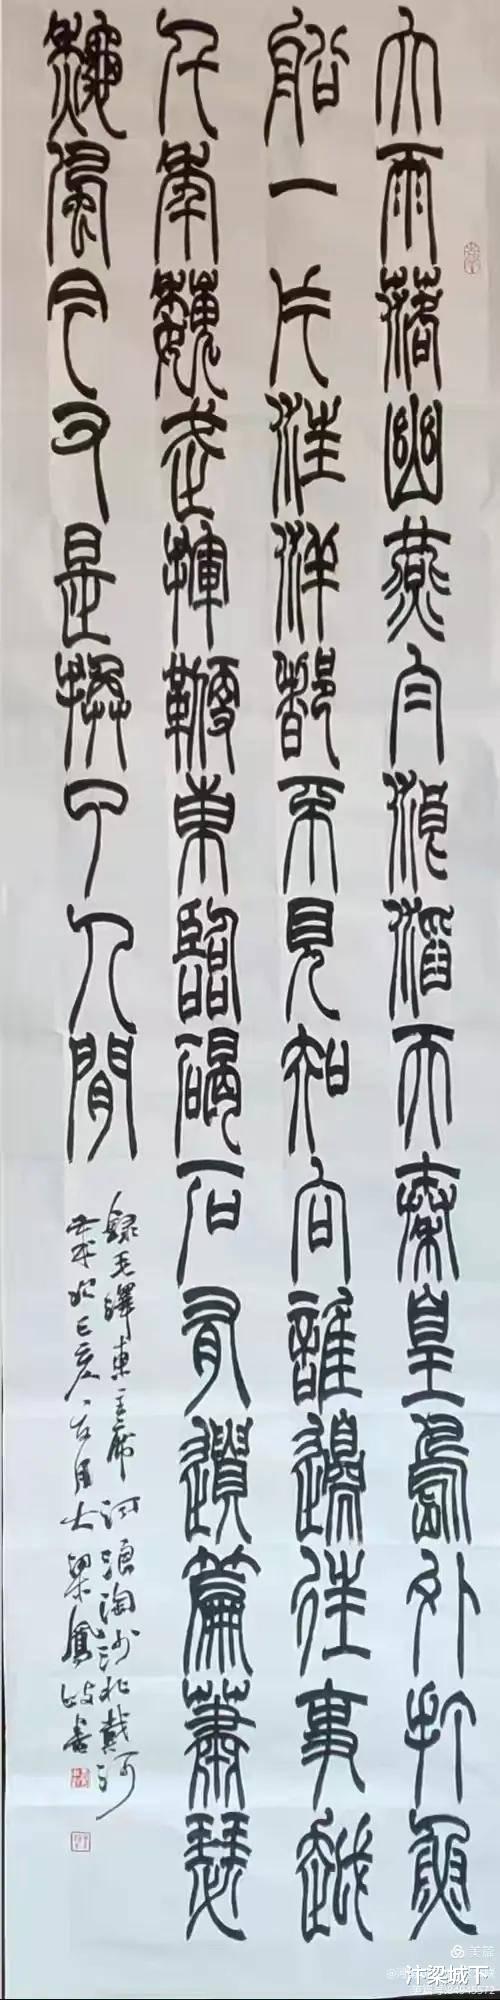 大雨落幽燕白浪滔天秦皇島外打魚
船一片汪洋都不見知向誰邊往事越
千年魏武揮鞭東臨碣石有遺篇蕭瑟
秋風今又是換了人間
錄毛澤東主席詞浪淘沙北戴河
己亥月大梁鳳岐書
美篇
汴梁城下